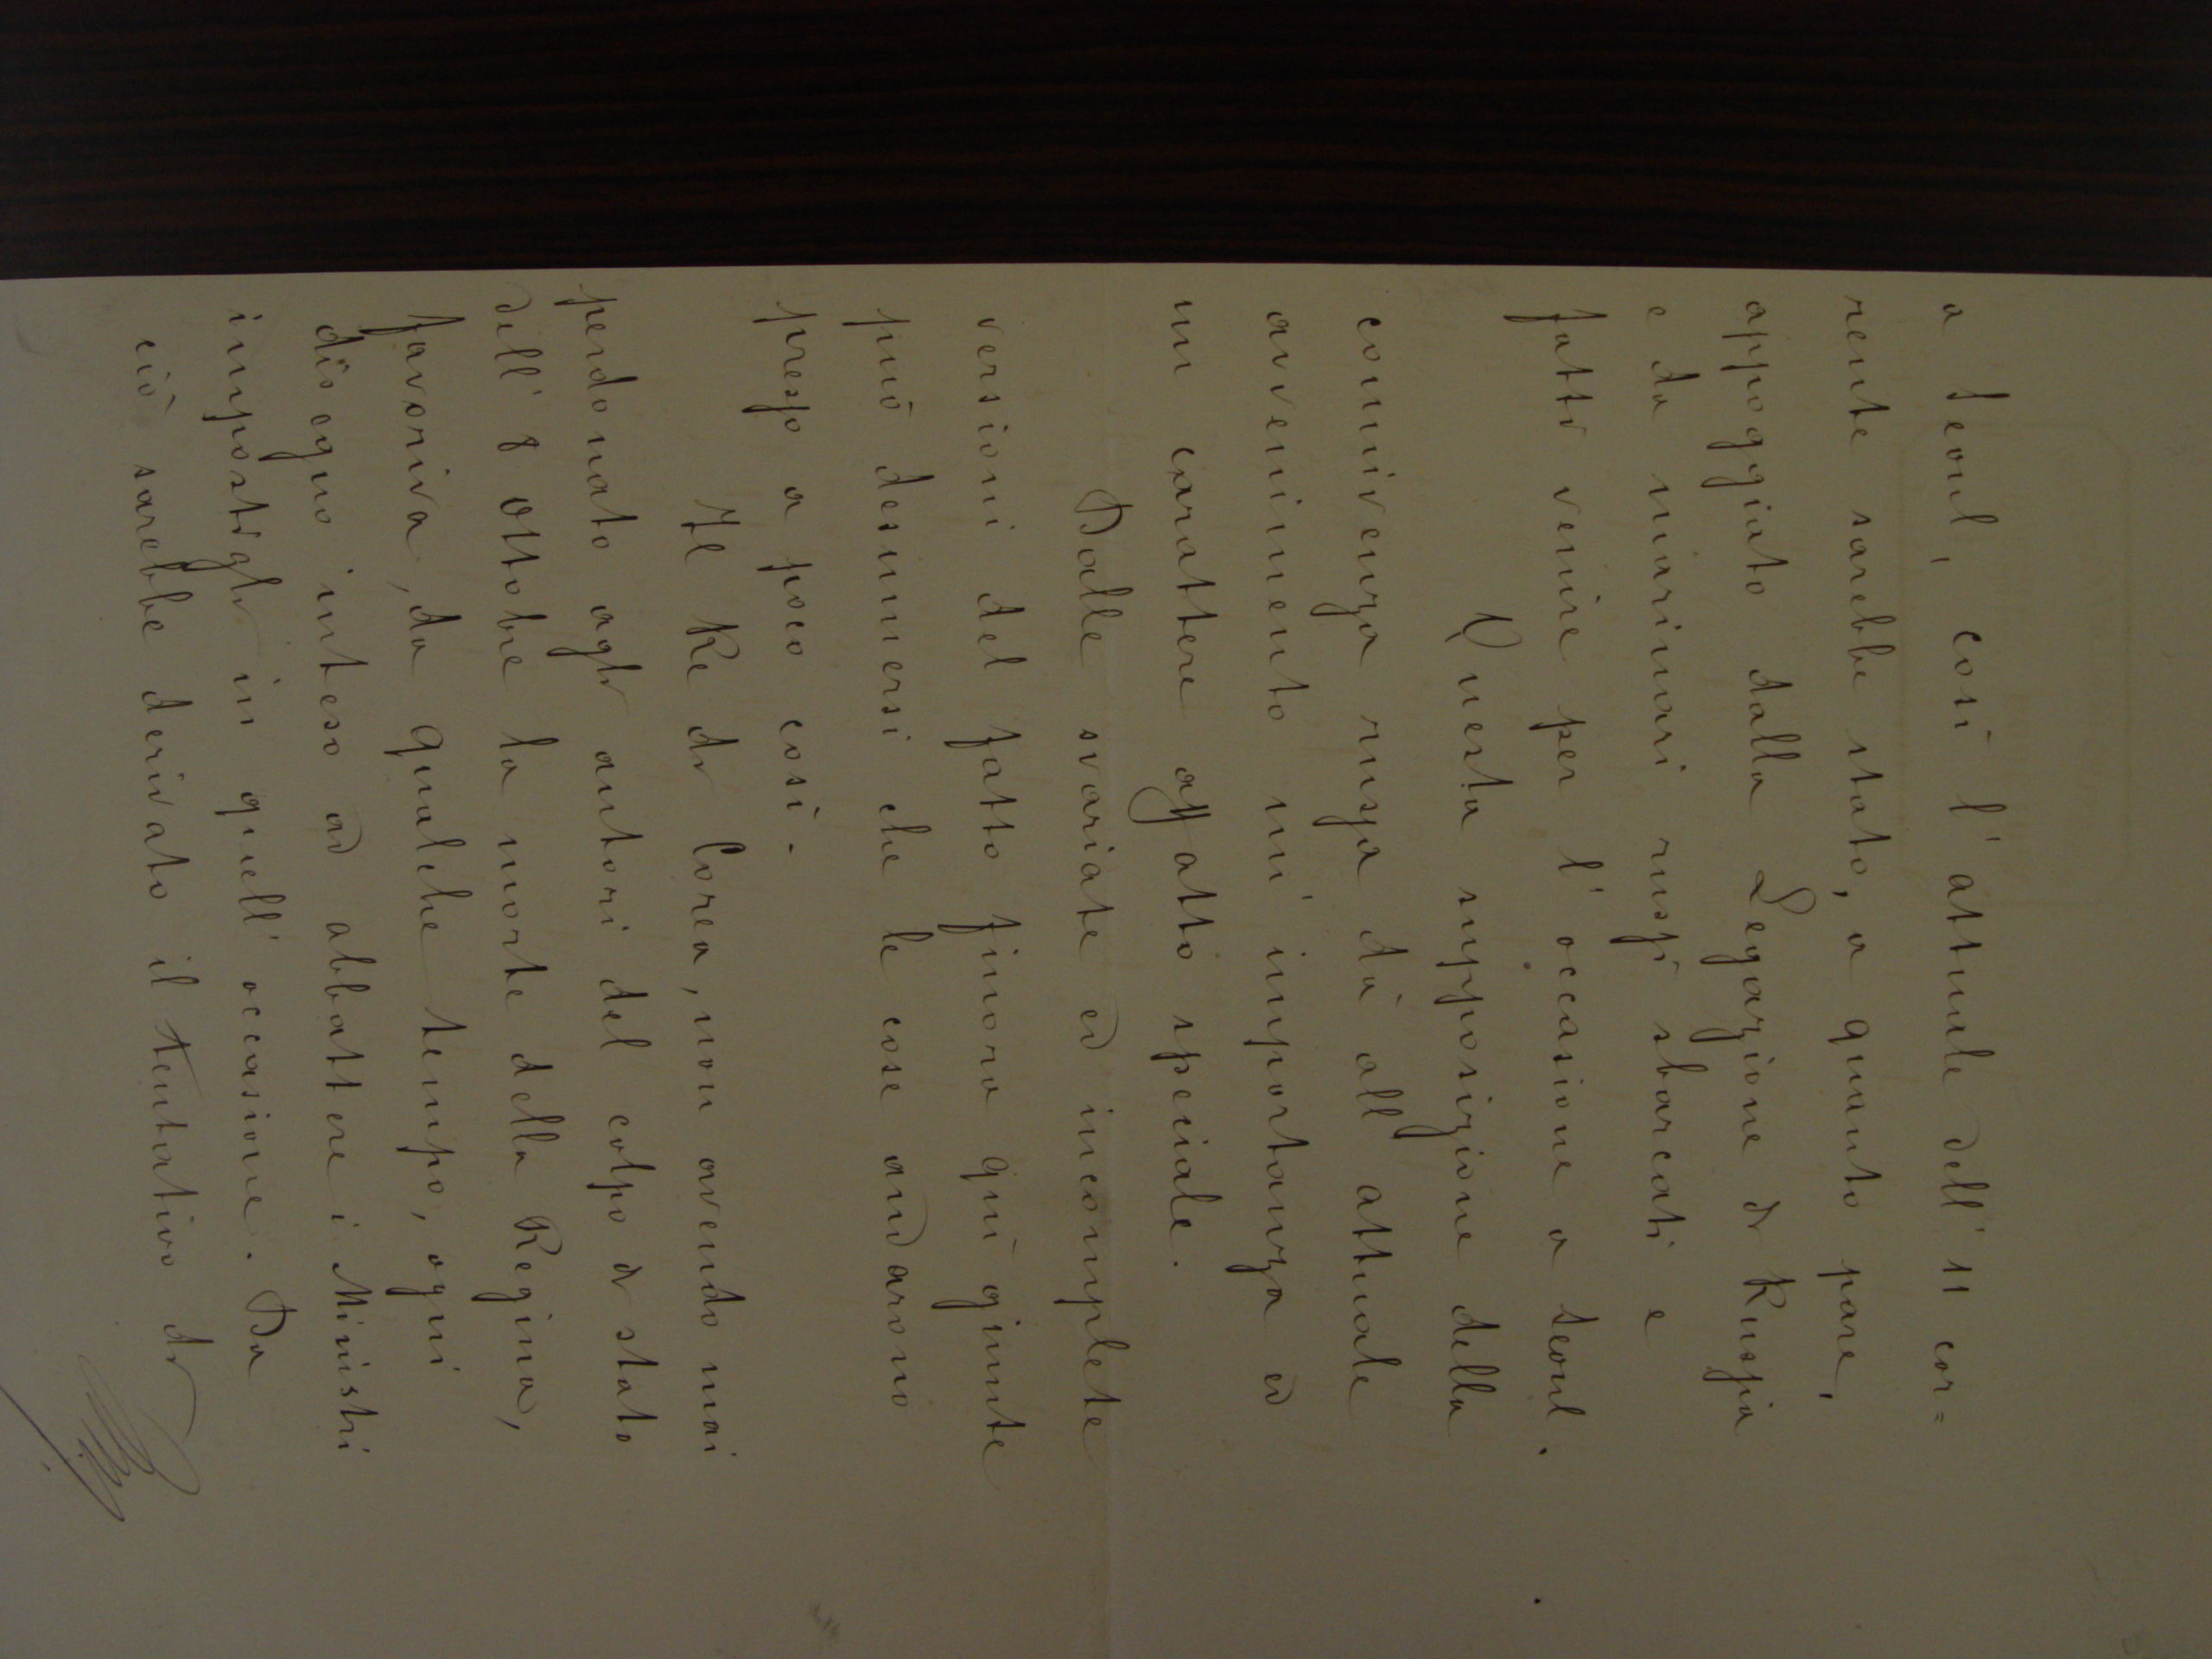 a Seoul, così l'attuale dell' 11 cor=
rente sarebbe stato, a quanto pare,
appoggiato dalla Legazione di Russia
e da marinari russi sbarcati e
fatti venire per l'occasione a Seoul.
Questa supposizione della
connivenza russa dà all'attuale
avvenimento un' importanza ed
un carattere affatto speciale.
Dalle svariate ed incomplete
versioni del fatto finora quì giunte
può desumersi che le cose andarono
presso a poco così.
Il Re di Corea, non avendo mai
perdonato agli autori del colpo di stato
dell' 8 Ottobre la morte della Regina,
favoriva, da qualche tempo, ogni
disegno inteso ad abbattere i Ministri
impostigli in quell' occasione. Da
ciò sarebbe derivato il tentativo di